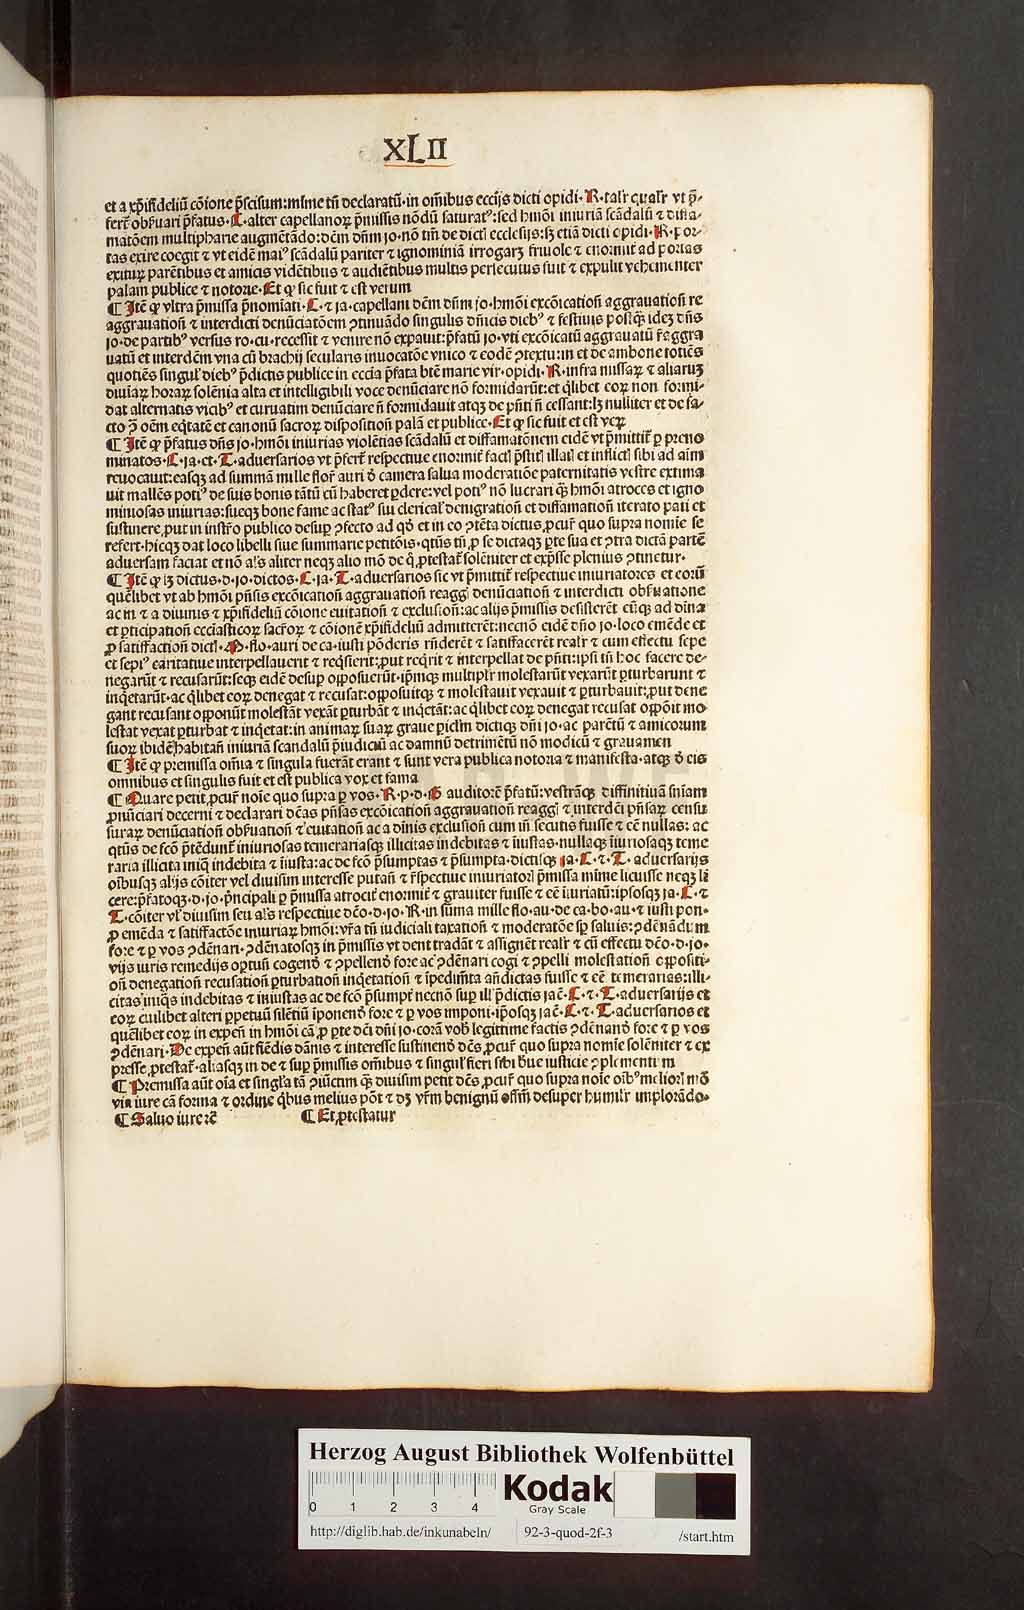 XLII
et a xp̃ifideliũ cõione p̃scisum: mĩme tñ declaratũ. in oĩnibus eccijs dicti opidi. R. talr̃ qualr̃ vt p̃-
ferĩ obſuari p̃fatus. C. alter capellanoꝝ p̃missis nõdũ saturatꝰ: sed hmõi iniuriã scãdalũ ⁊ diffa-
matõem multipharie augmẽtãdo: dẽm dñm jo. nõ tm̃ de dictĩ ecclesijs: sꝫ etiã dicti opidi. R. por-
tas exire coegit ⁊ vt eidẽ maiꝰ scãdalũ pariter ⁊ ignominiã irrogarꝫ friuole ⁊ enormiť ad portas
exiturꝫ parẽtibus et amicis vidẽtibus ⁊ audiẽtibus multis persecutus fuit ⁊ expulit vehementer
palam publice ⁊ notorie. Et ꝙ sic fuit ⁊ est verum
¶ Itẽ ꝙ vltra p̃missa p̃nomiati. C. ⁊ ja. capellani dẽm dñm jo. hmõi excõicatioñ aggrauatioñ re
aggrauatioñ ⁊ interdicti denũciatõem ꝯtinuãdo singulis dñicis diebꝰ ⁊ festiuis postꝗꝫ idẽ dñs
jo. de partibꝰ versus ro. cu. recessit ⁊ venire nõ expauit: p̃fatũ jo. vti excõicatũ aggrauatũ r̃aggra
uatũ et interdẽm vna cũ brachij secularis inuocatõe vnico ⁊ eodẽ ꝯtextu: in et de ambone totiẽs
quotiẽs singul̃ diebꝰ p̃dictis publice in eccia p̃fata btẽ marie vir. opidi. R. infra missaꝝ ⁊ aliarum
diuinaꝝ horaꝝ solẽnia alta et intelligibili voce denũciare nõ formidarũt: et q̃libet eoꝝ non formi-
dat alternatis vicibꝰ et curuatim denũciare ñ formidauit atqꝫ de pñti ñ cessant: lꝫ nulliter et de fa-
cto ꝯ̃ oẽm eq̃tatẽ et canonũ sacroꝝ dispositioñ palã et publice. Et ꝙ sic fuit et est veꝝ
¶ Itẽ ꝙ p̃fatus dñs jo. hmõi iniurias violẽtias scãdalũ et diffamatõnem eidẽ vt p̃mittiť ꝑ preno
minatos. C. ja. et. T. aduersarios vt p̃ferť respectiue enormiť factĩ p̃stitĩ illatĩ et inflictĩ sibi ad aĩm
reuocauit: easqꝫ ad summã mille flor̃ auri ð camera salua moderatiõe paternitatis vestre extima
uit mallẽs potiꝰ de suis bonis tãtũ cũ haberet ꝑdere: vel potiꝰ nõ lucrari ꝗꝫ hmõi atroces et igno
miniosas iniurias: sueqꝫ bone fame ac statꝰ sui clericaľ denigratioñ et diffamatioñ iterato pati et
sustinere, put in instr̃o publico desuꝑ ꝯfecto ad qð et in eo ꝯtẽta dictus, pcuř quo supra nomĩe se
refert. hicqꝫ dat loco libelli siue summarie petitõis. qtũs tñ, p se dictaqꝫ pte sua et ꝯtra dictã partẽ
aduersam faciat et nõ aľs aliter neqꝫ alio mõ de q̃, ptestať solẽniter et exp̃sse plenius ꝯtinetur.
¶ Itẽ ꝙ lꝫ dictus. d. jo. dictos. C. ja. T. aduersarios sic vt p̃mittiť respectiue iniuriatores et eorũ
quẽlibet vt ab hmõi pñsis excõicatioñ aggrauatioñ reagg̃ denũciatioñ ⁊ interdicti obſuatione
ac in ⁊ a diuinis ⁊ xp̃ifideliũ cõione euitatioñ ⁊ exclusioñ: ac alijs p̃missis desisterẽt eũqꝫ ad diña
et ꝑticipatioñ ecciasticoꝝ sacr̃oꝝ ⁊ cõionẽ xp̃ifideliũ admitterẽt: necnõ eidẽ dño jo. loco emẽde et
ꝓ satisfactioñ dictĩ. M. flo. auri de ca. iusti põderis rñderẽt ⁊ satisfacerẽt realr̃ ⁊ cum effectu sepe
et sepiꝰ caritatiue interpellauerit ⁊ reqsierit: put reqrit ⁊ interpellat de pñti: ipsi tñ hoc facere de-
negarũt ⁊ recusarũt: seqꝫ eidẽ desuꝑ opposuerũt. ipm̃qꝫ multiplr̃ molestarũt vexarũt ꝑturbarunt ⁊
inq̃etarũt. ac q̃libet eoꝝ denegat ⁊ recusat: opposuitqꝫ ⁊ molestauit vexauit ⁊ ꝑturbauit: put dene
gant recusant opponũt molestãt vexãt ꝑturbãt ⁊ inq̃etãt: ac q̃libet eoꝝ denegat recusat oppõit mo
lestat vexat ꝑturbat ⁊ inq̃etat: in animaꝝ suaꝝ graue ꝑiclm̃ dictiqꝫ dñi jo. ac parẽtũ ⁊ amicorum
suoꝝ ibidẽ habitañ iniuriã scandalũ p̃iudiciũ ac damnũ detrimẽtũ nõ modicũ ⁊ grauamen
¶ Itẽ ꝙ premissa oĩnia ⁊ singula fuerãt erant ⁊ sunt vera publica notoria ⁊ manifesta. atqꝫ ð eis
omnibus et singulis fuit et est publica vox et fama
¶ Quare petit, pcuř noĩe quo supra ꝑ vos. R. p. d. G auditorẽ p̃fatũ: vestrãqꝫ diffinitiuã sñiam
, pnũciari decerni ⁊ declarari dc̃as pñsas excõicatioñ aggrauatioñ reagg̃ ⁊ interdc̃i pñsaꝝ censu
suraꝝ denũciatioñ obſuatioñ ⁊ euitatioñ ac a diñis exclusioñ cum iñ secutis fuisse ⁊ cẽ nullas: ac
qtũs de fc̃o p̃tẽdunť iniuriosas temerariasqꝫ illicitas indebitas ⁊ iiustas. nullaqꝫ iiuriosaqꝫ teme
raria illicita iniq̃ indebita ⁊ iiusta: ac de fc̃o p̃sumptas ⁊ p̃sumpta. dictisqꝫ ja. C. ⁊. T. aduersarijs
oĩbusqꝫ alijs cõiter vel diuisim interesse putañ ⁊ r̃spectiue iniuriatorĩ p̃missa mĩme licuisse neqꝫ li
cere: p̃fatoqꝫ. d. jo. pncipali ꝑ p̃missa atrociť enormiť ⁊ grauiter fuisse ⁊ cẽ iiuriatũ: ipsosqꝫ ja. C. ⁊
T. cõiter vľ diuisim seu aľs respectiue dc̃o. d. jo. R. in sũma mille flo. au. de ca. bo. au. ⁊ iusti pon.
ꝓ emẽda ⁊ satisfactõe iniuriaꝝ hmõi: vr̃a tñ iudiciali taxatioñ ⁊ moderatõe sp̃ saluis: ꝯdẽnãdum
fore ⁊ ꝑ vos ꝯdẽnari. ꝯdẽnatosqꝫ in p̃missis vt dent tradãt ⁊ assignẽt realr̃ ⁊ cũ effectu dc̃o. d. jo.
vijs iuris remedijs optuñ cogenð ⁊ ꝯpellenð fore ac ꝯdẽnari cogi ⁊ ꝯpelli molestatioñ oppositi-
oñ denegatioñ recusatioñ ꝑturbatioñ inq̃etatioñ ⁊ ĩpedim̃ta añdictas fuisse ⁊ cẽ temerarias: illi-
citas iniq̃s indebitas ⁊ iniustas ac de fc̃o p̃sumpť necnõ suꝑ ill' p̃dictis jac̃. C. ⁊. T. aduersarijs et
eoꝝ cuilibet alteri ꝑpetuũ silẽtiũ ĩponenð fore ⁊ ꝑ vos imponi. ip̃osqꝫ jac̃. C. ⁊. T. aduersarios et
quẽlibet eoꝝ in expeñ in hmõi cã, p pte dc̃i dñi jo. corã vob̃ legitime factis ꝯdẽnanð fore ⁊ ꝑ vos
ꝯdẽnari. De expeñ aũt fiẽdis dãnis ⁊ interesse sustinenð dc̃s, pcuř quo supra nomĩe solẽniter ⁊ ex
presse, ptestať. aliasqꝫ in de ⁊ suꝑ p̃missis oĩnibus ⁊ singuľ fieri sibi ðue iusticie ꝯplementum
¶ Premissa aũt oĩa et singľa tã ꝯiũctim ꝗꝫ diuisim petit dc̃s, pcuř quo supra noĩe oĩbꝰ meliorĩ mõ
via iure cã forma ⁊ ordine q̃bus melius põt ⁊ dꝫ vr̃m benignũ offm̃ desuper humilr̃ implorãdo.
¶ Saluo iure rc̃ ¶ Et, ptestatur
Herzog August Bibliothek Wolfenbüttel
0 1 2 3 4
Kodak
Gray Scale
http://diglib.hab.de/inkunabeln/ 92-3-quod-2f-3 /start.htm